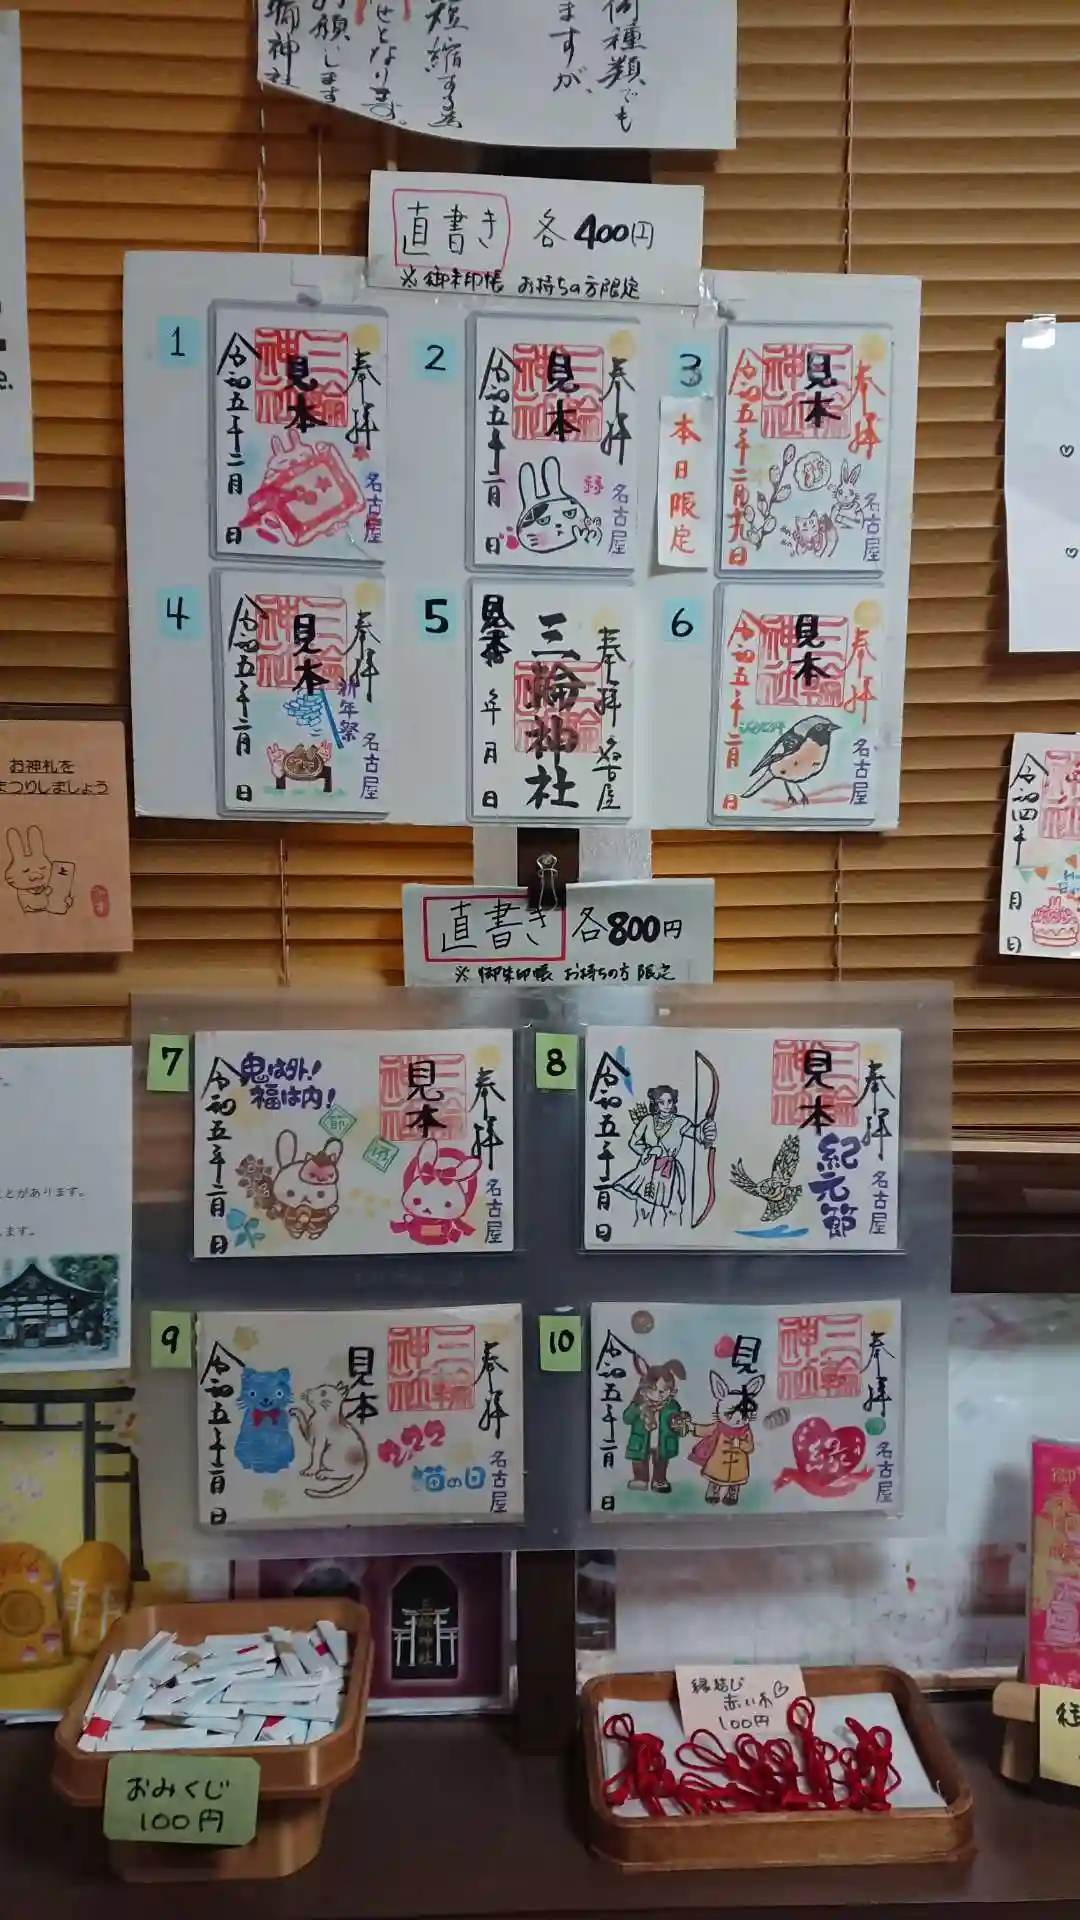 何種類でも
ますが、
短縮する為
せとなります。
お願いします
神社
直書き 各400円
※御朱印帳 お持ちの方限定
1
奉拝
三輪神社
見本
名古屋
令和五年二月 日
2
奉拝
三輪神社
見本
名古屋
令和五年二月 日
3
本日限定
奉拝
三輪神社
見本
名古屋
令和五年二月九日
4
奉拝
三輪神社
見本
新年祭
名古屋
令和五年二月 日
5
奉拝 名古屋
三輪神社
三輪神社
見本
年 月 日
6
奉拝
三輪神社
見本
名古屋
令和五年二月 日
直書き 各800円
※御朱印帳 お持ちの方限定
7
奉拝
三輪神社
見本
名古屋
鬼は外!
福は内!
節
分
令和五年二月 日
8
奉拝
三輪神社
見本
紀元節
名古屋
令和五年二月 日
9
奉拝
三輪神社
見本
222
猫の日
名古屋
令和五年二月 日
10
奉拝
三輪神社
見本
縁
名古屋
令和五年二月 日
お神札を
まつりしましょう
ことがあります。
ます。
令和四年 月 日
三輪神社
おみくじ
100円
縁結び
赤い糸♡
100円